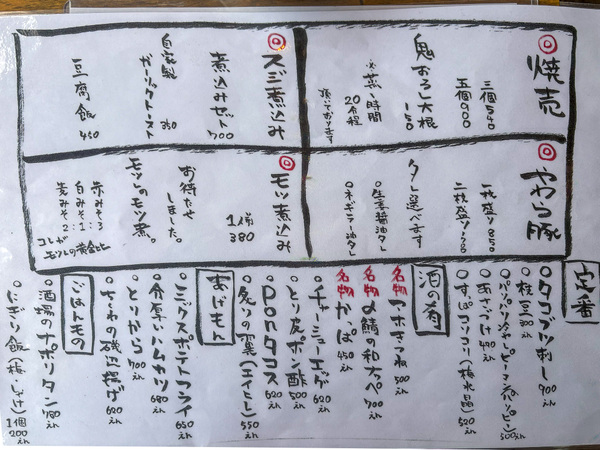 焼売
三個540
五個900
鬼おろし大根
150
※蒸し時間
20分程
頂いております
スジ煮込み
煮込みセット
700
自家製
ガーリックトースト
350
豆腐飯
450
やわら豚
タレ選べます
○生姜醤油タレ
モツ煮込み
1人前
380
お待たせ
しました。
モツレのモツ煮。
赤みそ3
白みそ2
麦みそ2
コレが
モツレの黄金比
定番
○タコブツ刺し 700えん
○枝豆 380えん
○あさづけ 420えん
○すぽコリコリ(梅水晶) 520えん
酒の肴
名物 アホきつね 500えん
名物 〆鯖の和カペ 700えん
名物 かっぱ 450えん
○チャーシューエッグ 620えん
○とり皮ポン酢 500えん
○Donタコス 620えん
○炙りの翼(エイヒレ) 550えん
あげもん
○ミックスポテトフライ 650えん
○分厚いハムカツ 680えん
○とりから 700えん
○ちくわの磯辺揚げ 620えん
ごはんもの
○酒場のナポリタン 780えん
○にぎり飯(梅・しゃけ)1個 200えん